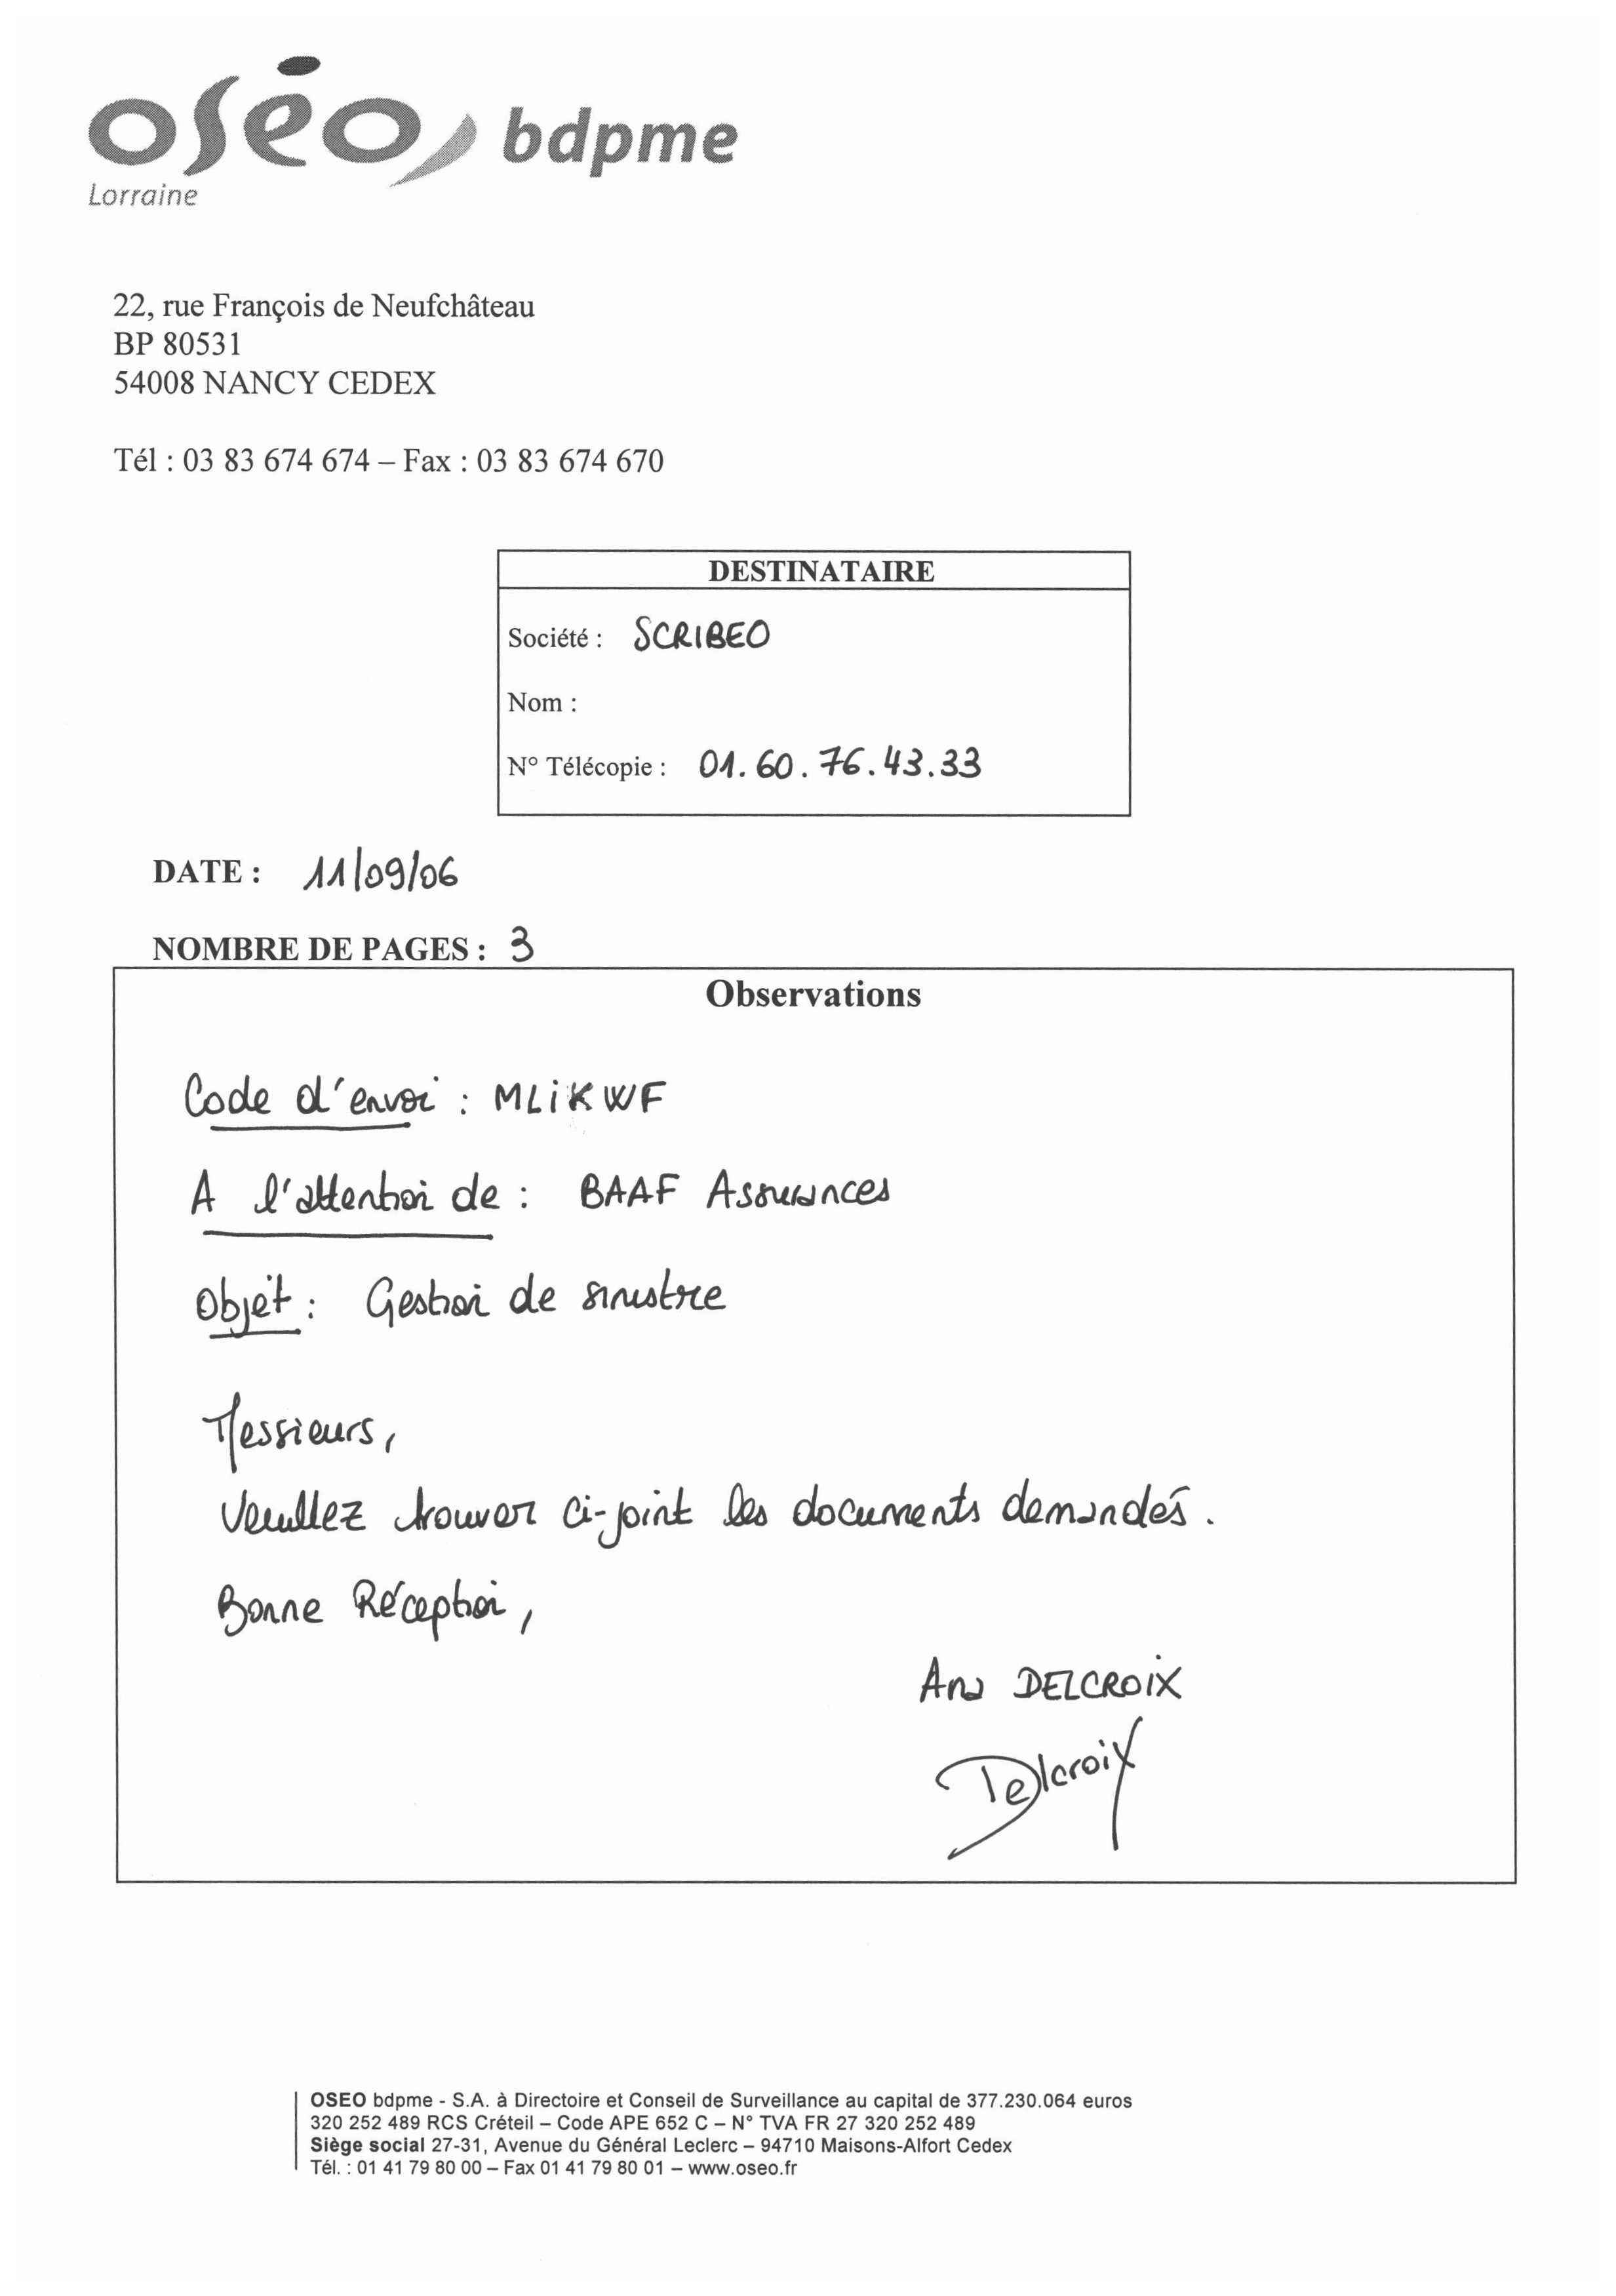 oséo bdpme
Lorraine
22, rue François de Neufchâteau
BP 80531
54008 NANCY CEDEX
Tél : 03 83 674 674 – Fax : 03 83 674 670
DESTINATAIRE
Société : SCRIBEO
Nom :
N° Télécopie : 01.60.76.43.33
DATE : 11/09/06
NOMBRE DE PAGES : 3
Observations
Code d'envoi : MLiKWF
A l'attention de : BAAF Assurances
Objet : Gestion de sinistre
Messieurs,
Veuillez trouver ci-joint les documents demandés.
Bonne Réception,
Ana DELCROIX
Delcroix
OSEO bdpme - S.A. à Directoire et Conseil de Surveillance au capital de 377.230.064 euros
320 252 489 RCS Créteil – Code APE 652 C – N° TVA FR 27 320 252 489
Siège social 27-31, Avenue du Général Leclerc – 94710 Maisons-Alfort Cedex
Tél. : 01 41 79 80 00 – Fax 01 41 79 80 01 – www.oseo.fr